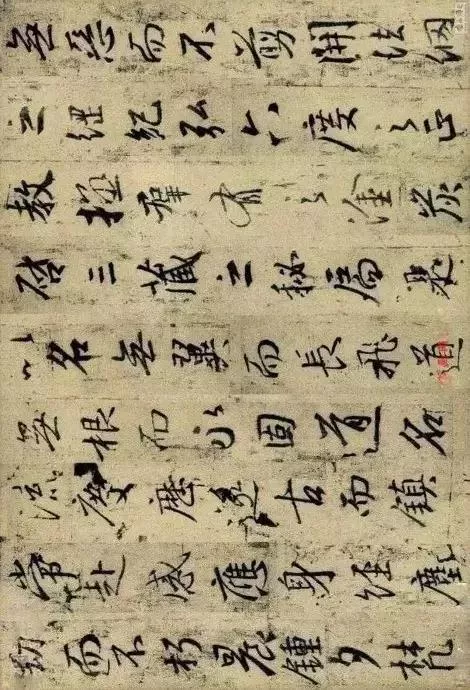 無惡而不剪開法網
之綱紀弘六度之正
教拯群有之塗炭
啓三藏之秘扃是
以名無翼而長飛道
無根而永固道名
流慶歷遂古而鎮
常赴感應身經塵
劫而不朽晨鐘夕梵